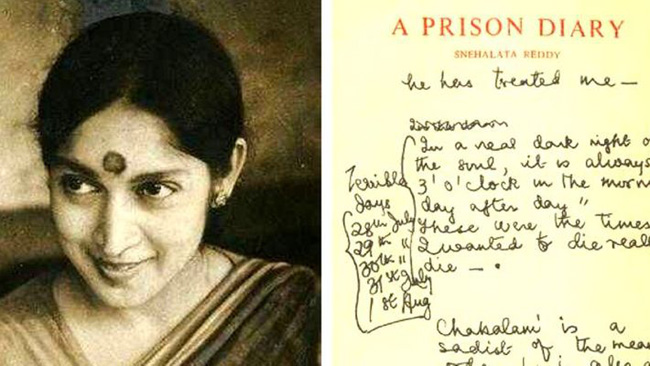 A PRISON DIARY
SNEHALATA REDDY
he has treated me —
In a real dark night o
the soul, it is always
3' o' clock in the morn
day after day"
These were the times
I wanted to die reall
die —.
Terrible
days
28th July
29th "
30th "
31st July
1st Aug
Chakalani is a
sadist of the mean